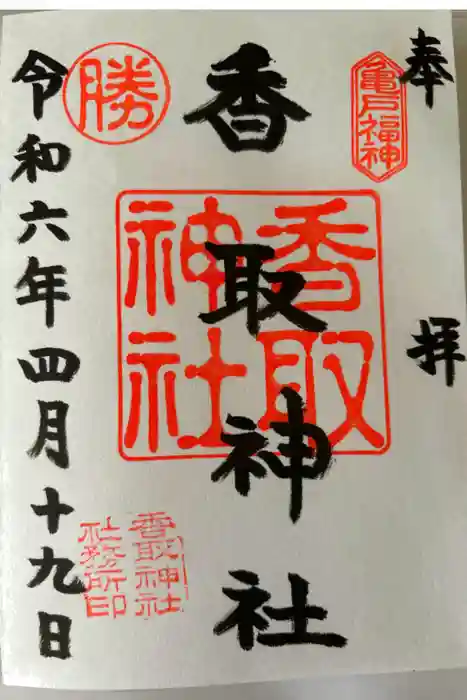 奉拝
亀戸福神
香取神社
香取神社
勝
香取神社
社務所印
令和六年四月十九日